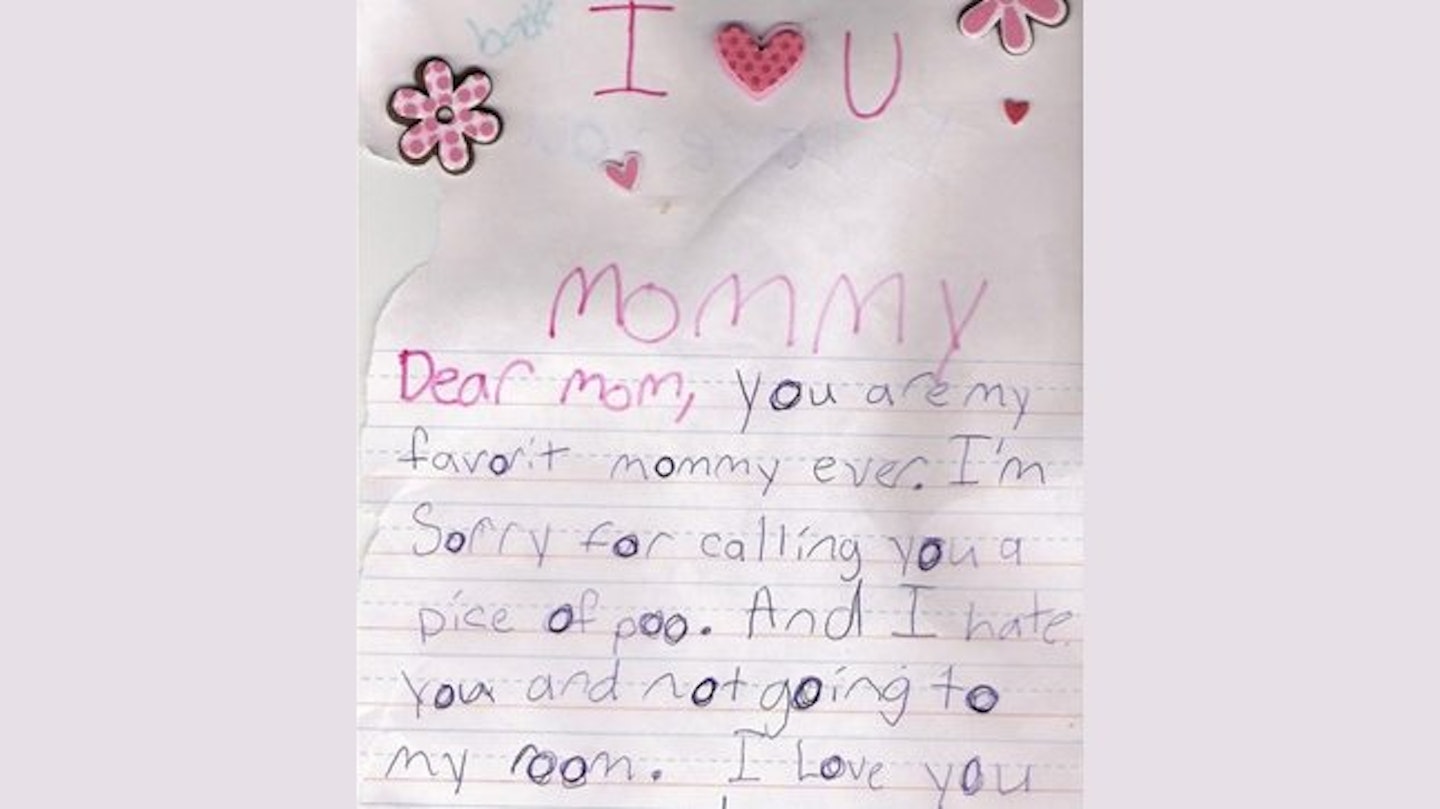 I U
mommy
Dear mom, you are my
favorit mommy ever. I'm
Sorry for calling you a
pice of poo. And I hate
you and not going to
my room. I Love you